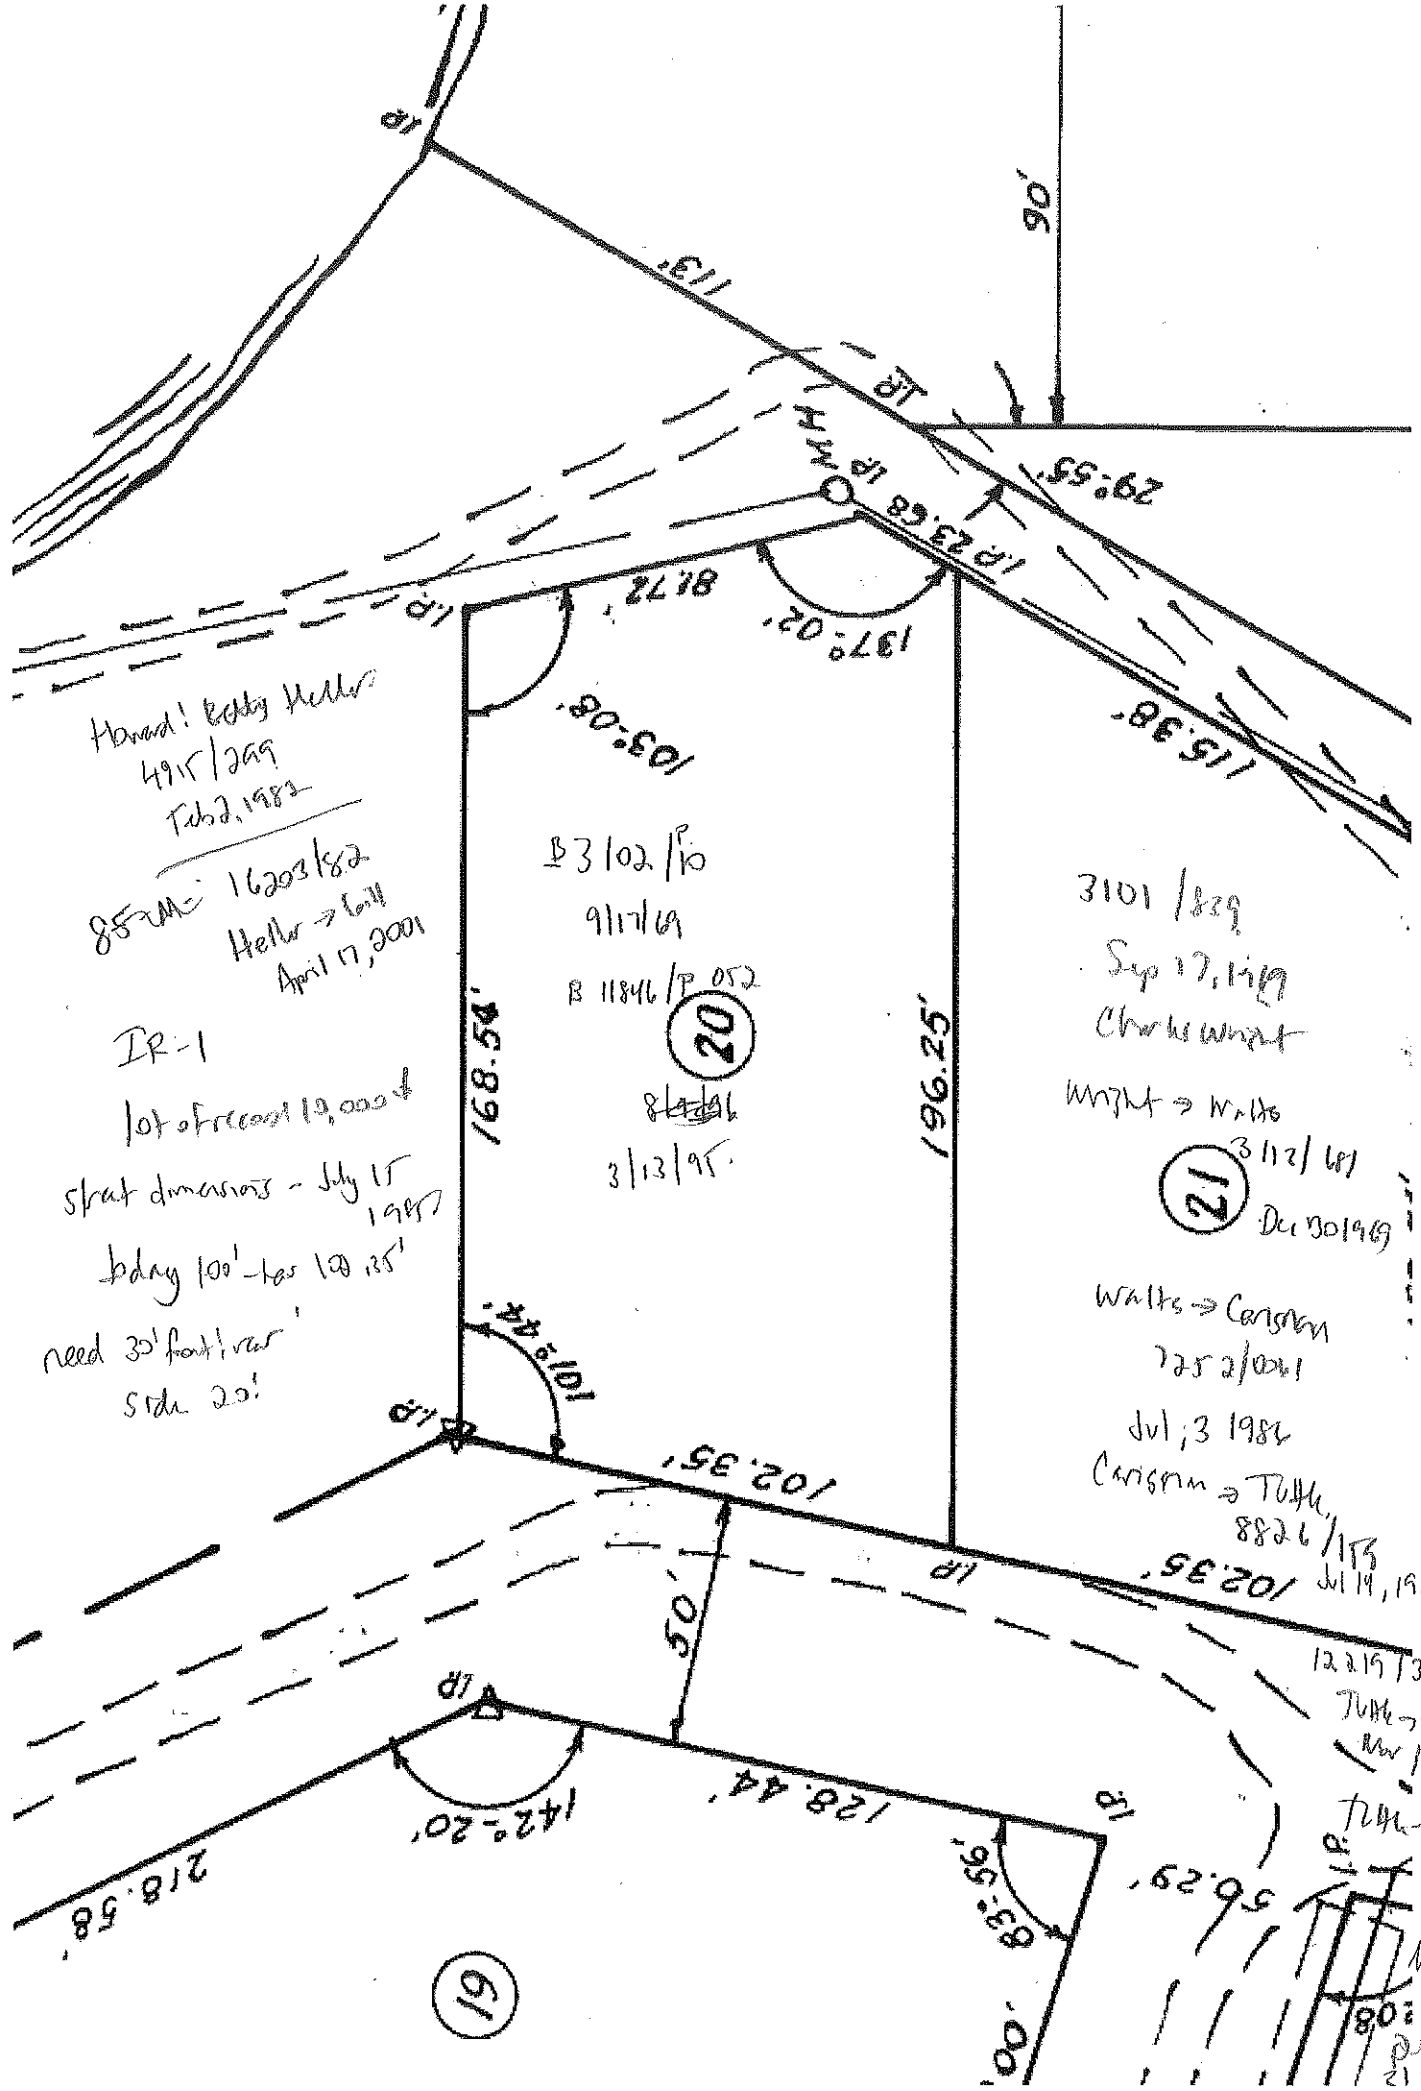 I.P.
113'
90'
I.P.
M.H.
I.P.
29°-55'
I.P. 23.68
I.P.
81.72'
137°-02'
103°-08'
115.38'
Howard & Betty Heller
4915/299
Feb 2, 1982
16203/82
Heller → 
April 17, 2001
IR-1
lot of record 10,000
street dimensions - July 15
today 100' - has 100.35'
need 30' front & rear
side 20'
B 3102/P 10
9/17/69
B 11846/P 052
20
3/13/95
168.54'
196.25'
3101/829
Sep 17, 1969
Charles Wright
Wright → Watts
3112/681
21
Dec 30 1969
Watts → Carignan
7252/0061
Jul, 3 1986
Carignan → Tuttle
8826/155
Jul 19, 19
101°-44'
I.P.
102.35'
I.P.
102.35'
50'
12219/3
Tuttle →
Tuttle -
I.P.
142°-20'
128.44'
I.P.
83°-56'
56.29'
I.P.
218.58'
61
.00'
208